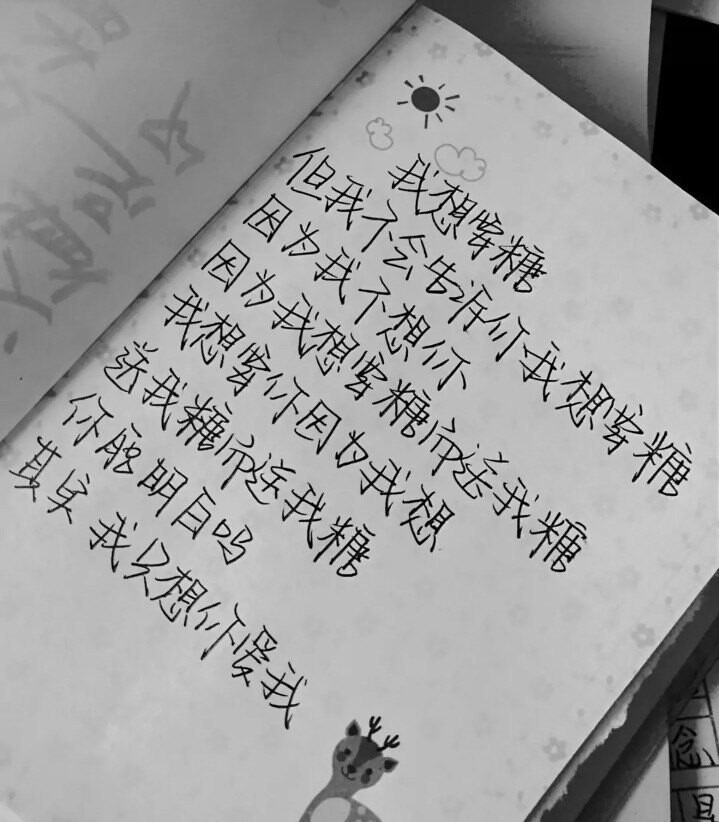 我想要糖
但我不会告诉你我想要糖
因为我不想你
因为我想要糖而送我糖
我想要你因为我想
送我糖而送我糖
你能明白吗
其实 我只想你爱我
念